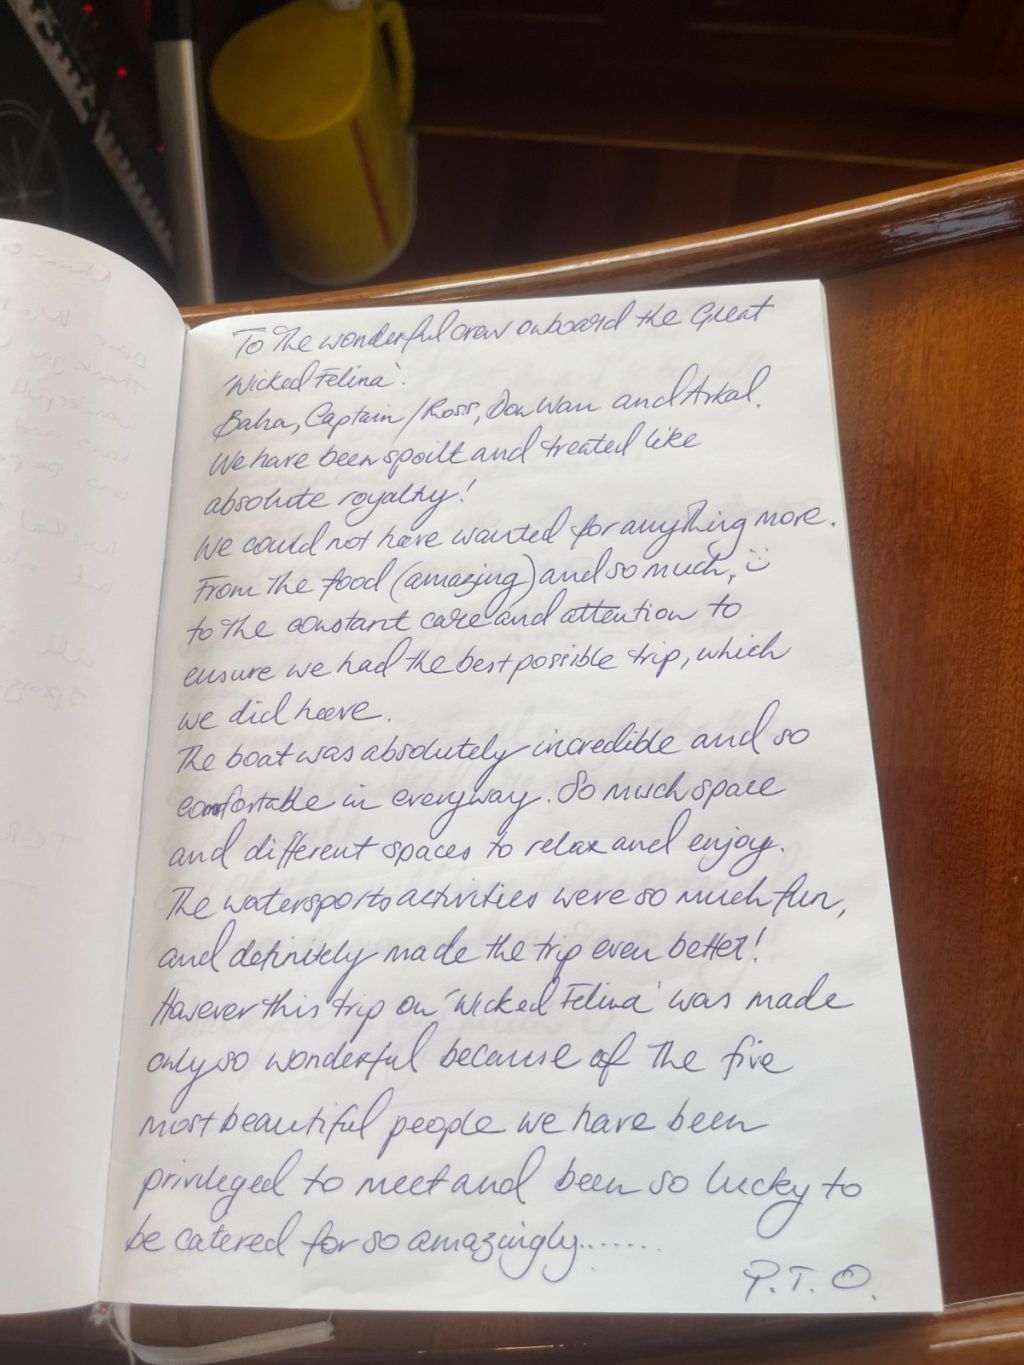 To The wonderful crew onboard the Great
'Wicked Felina'.
Baha, Captain / Ross, Don Wan and Askal.
We have been spoilt and treated like
absolute royalty!
We could not have wanted for anything more.
From The food (amazing) and so much, :)
to The constant care and attention to
ensure we had the best possible trip, which
we did have.
The boat was absolutely incredible and so
comfortable in everyway. So much space
and different spaces to relax and enjoy.
The watersports activities were so much fun,
and definitely made the trip even better!
However this trip on 'Wicked Felina' was made
only so wonderful because of The five
most beautiful people we have been
privileged to meet and been so lucky to
be catered for so amazingly.......
P.T.O.